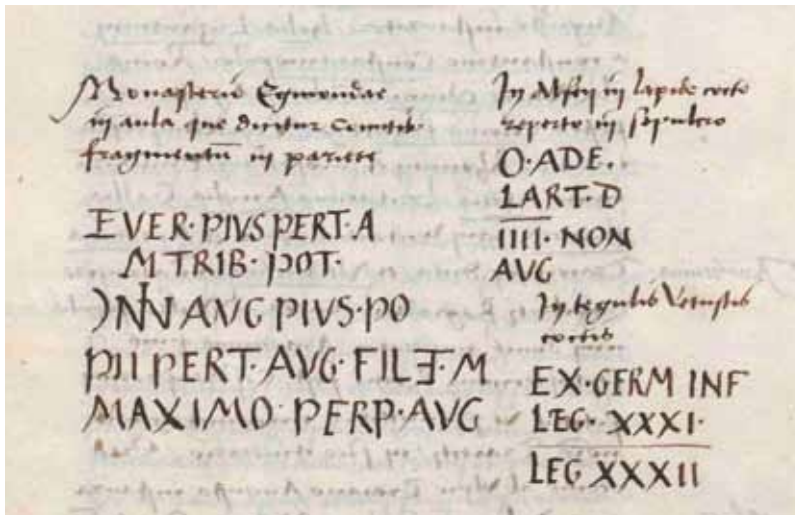 Monasterio Egmondae
in aula que dicitur Comitis
fragmentum in pariete
EVER·PIVS PERT·A
M TRIB·POT·
ANTONINI AVG PIVS·PO
PII PERT·AVG·FIL Ǝ·M
MAXIMO PERP·AVG
In in lapide cocto
reperto in sepulcro
O·ADE.
LART·D
IIII·NON
AVG
In tegulis Vetustis
coctis
EX·GERM INF
LEG·XXXI·
LEG XXXII